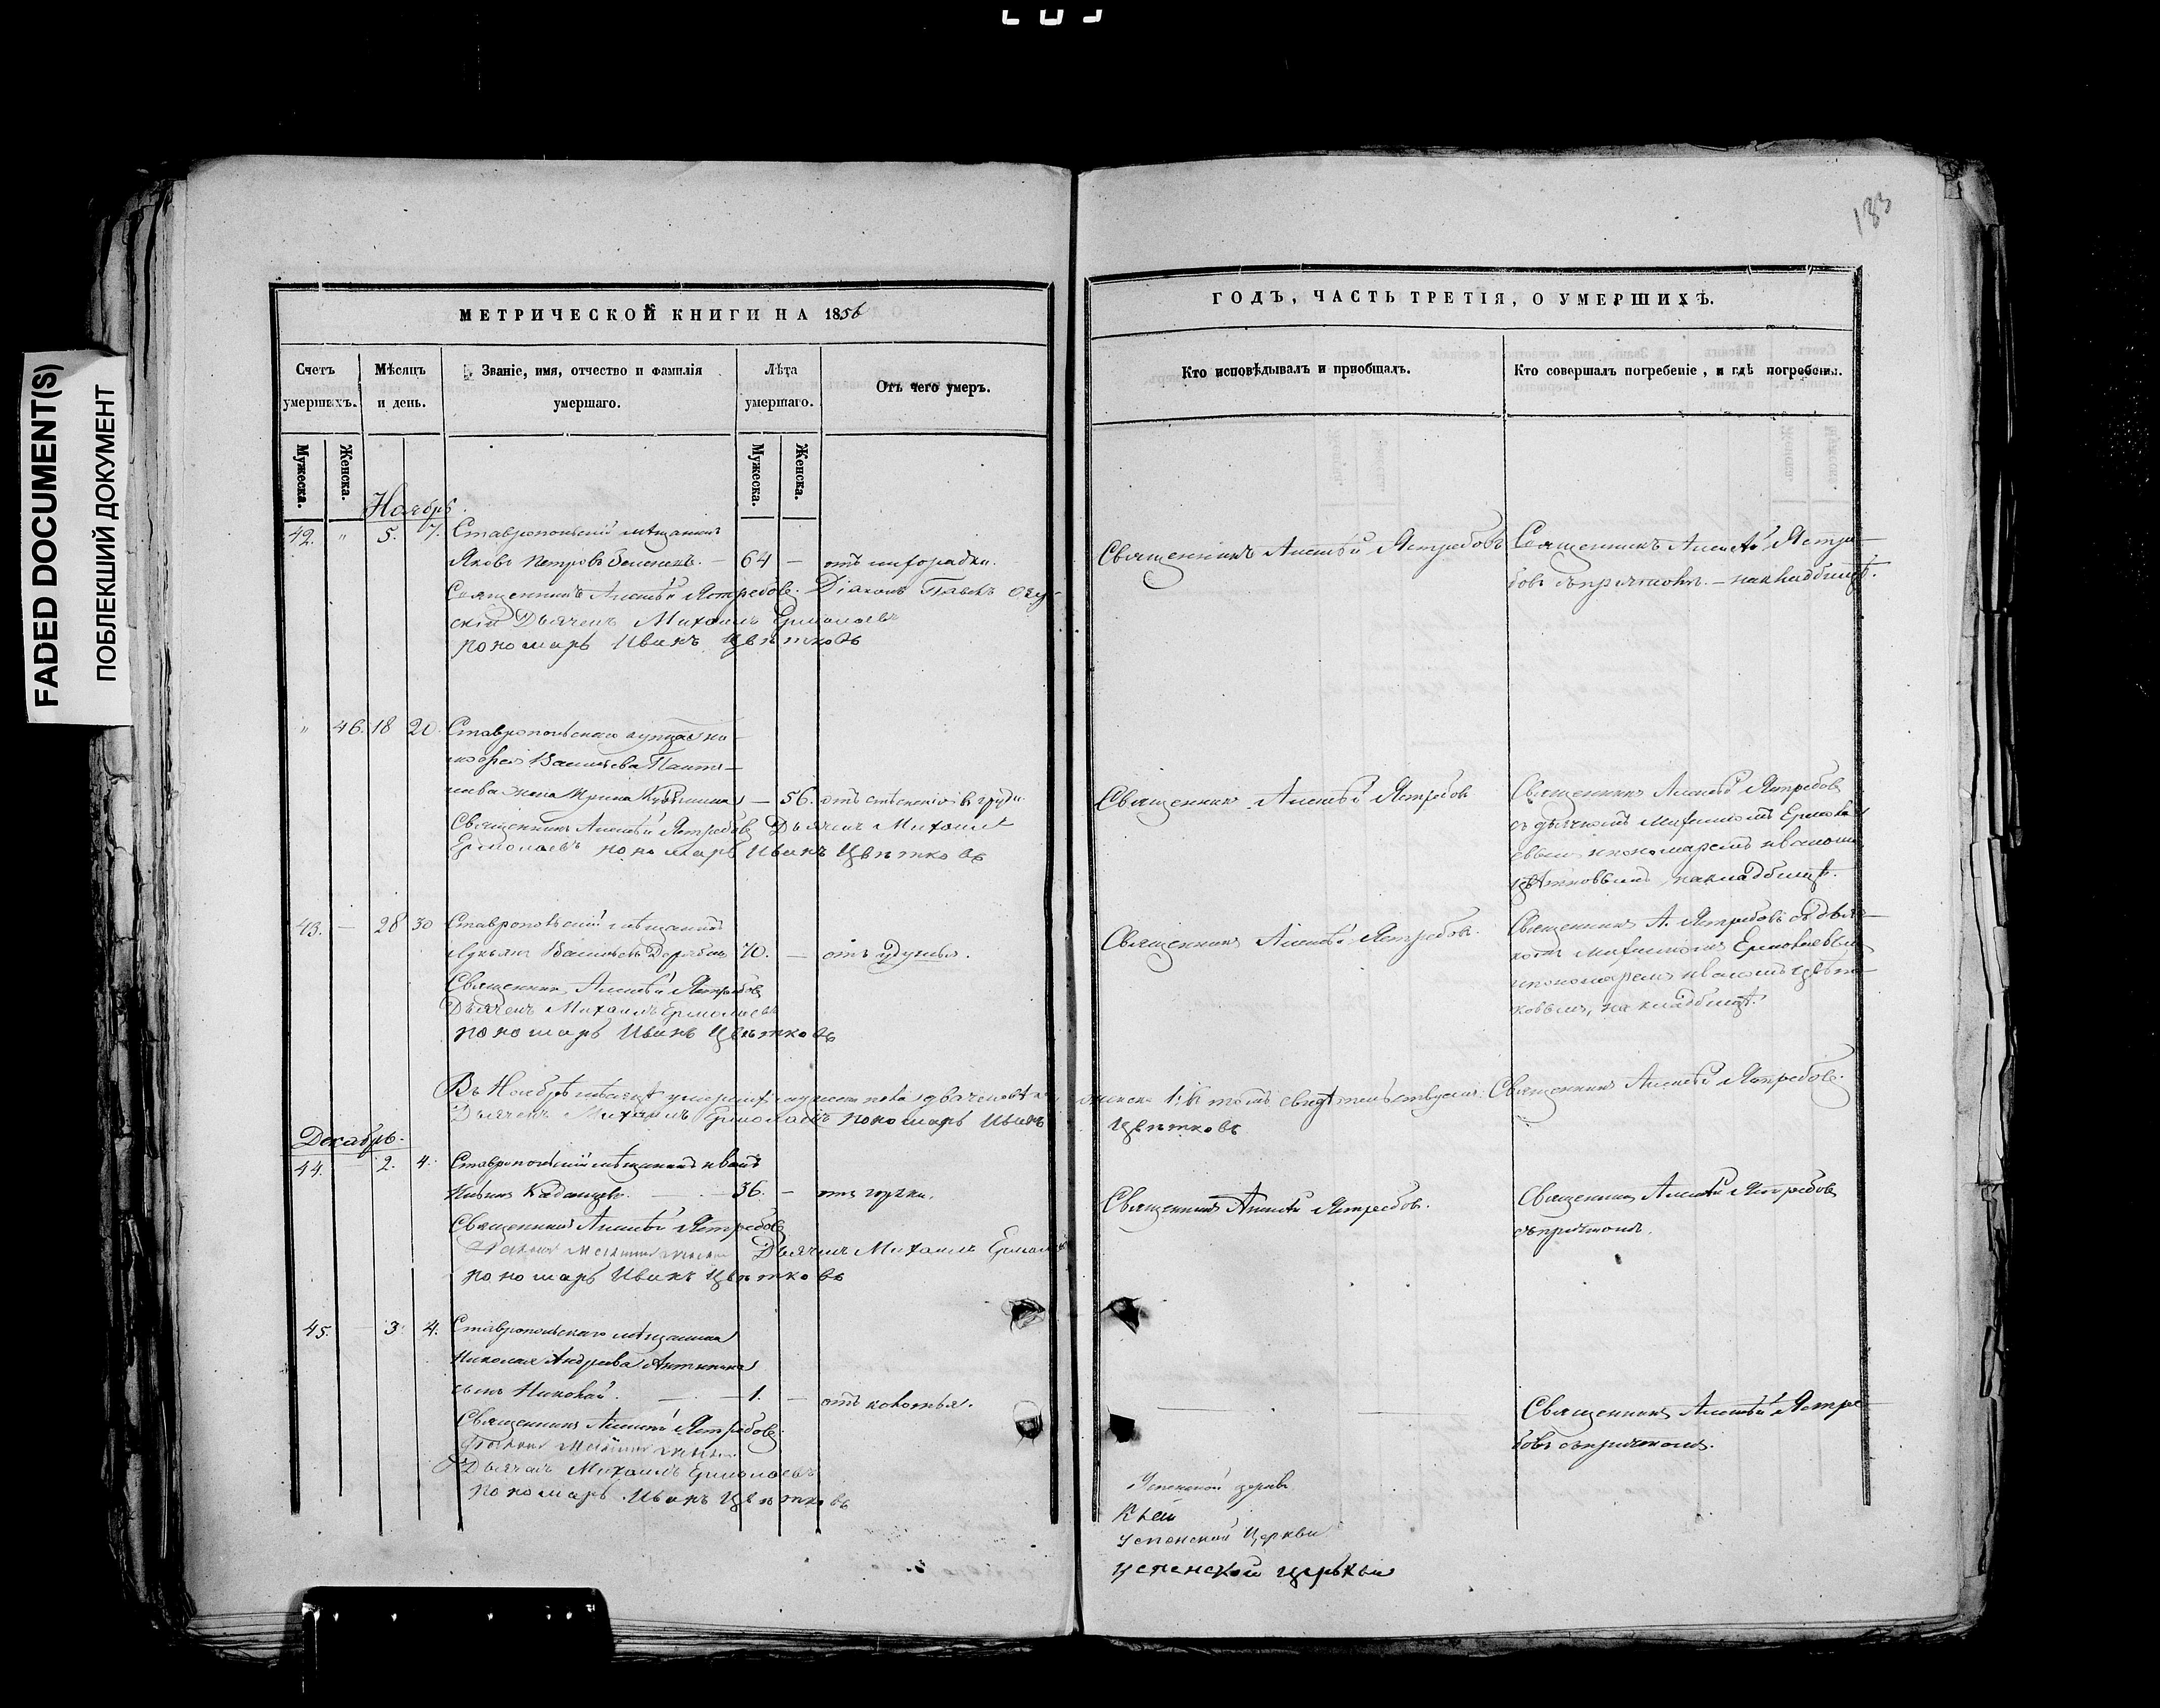 FADED DOCUMENT(S)
ПОБЛЕКШИЙ ДОКУМЕНТ
183
МЕТРИЧЕСКОЙ КНИГИ НА 1856
ГОДЪ, ЧАСТЬ ТРЕТІЯ, О УМЕРШИХЪ.
Счетъ умершихъ.
Мѣсяцъ и день.
Званіе, имя, отчество и фамилія умершаго.
Лѣта умершаго.
Отъ чего умеръ.
Кто исповѣдывалъ и пріобщалъ.
Кто совершалъ погребеніе, и гдѣ погребены.
Мужеска.
Женска.
Мужеска.
Женска.
Ноябрь.
42. " 5. 7. Ставропольскій мѣщанинъ
Яковъ Петровъ — 64 — отъ лихорадки.
Священникъ Алексѣй Ястребовъ
Священникъ Алексѣй Ястре-
бовъ съ причтомъ. — на кладбищѣ.
Священникъ Алексѣй Ястребовъ. Діаконъ Павелъ
Дьячекъ Михаилъ Ермолаевъ
пономарь Иванъ Цвѣтковъ
" 46. 18 20. Ставропольскаго
Васильева
жена Ирина — 56. отъ стѣсненія въ груди
Священникъ Алексѣй Ястребовъ
Священникъ Алексѣй Ястребовъ
съ дьячкомъ Михаиломъ Ермола-
евымъ и пономаремъ Иваномъ
Цвѣтковымъ, на кладбищѣ.
Священникъ Алексѣй Ястребовъ Дьячекъ Михаилъ
Ермолаевъ пономарь Иванъ Цвѣтковъ
43. — 28 30 Ставропольскій мѣщанинъ
Лукьянъ Васильевъ 70. — отъ удушья.
Священникъ Алексѣй Ястребовъ.
Священникъ А. Ястребовъ съ дьяч-
комъ Михаиломъ Ермолаевымъ
и пономаремъ Иваномъ Цвѣт-
ковымъ, на кладбищѣ.
Священникъ Алексѣй Ястребовъ
Дьячекъ Михаилъ Ермолаевъ
пономарь Иванъ Цвѣтковъ
Въ Ноябрѣ мѣсяцѣ умершихъ мужеска пола два женска 1. въ томъ свидѣтельствуемъ: Священникъ Алексѣй Ястребовъ.
Дьячекъ Михаилъ Ермолаевъ пономарь Иванъ Цвѣтковъ
Декабрь.
44. 2. 4. Ставропольскій мѣщанинъ Иванъ
36. — отъ горячки.
Священникъ Алексѣй Ястребовъ.
Священникъ Алексѣй Ястребовъ
съ причтомъ.
Священникъ Алексѣй Ястребовъ
Дьячекъ Михаилъ
пономарь Иванъ Цвѣтковъ
45. 3. 4. Ставропольскаго мѣщанина
Николая Андреева
сынъ Николай. — 1. — отъ колотья.
Священникъ Алексѣй Ястре-
бовъ съ причтомъ.
Священникъ Алексѣй Ястребовъ
Дьячекъ Михаилъ Ермолаевъ
пономарь Иванъ Цвѣтковъ
Успенской церкви
Успенской Церкви
успенской церькви